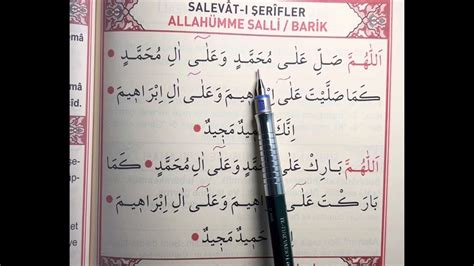 SALEVÂT-I ŞERÎFLER
ALLAHÜMME SALLİ / BARİK
اَللّٰهُمَّ صَلِّ عَلٰى مُحَمَّدٍ وَعَلٰٓى اٰلِ مُحَمَّدٍ
كَمَا صَلَّيْتَ عَلٰٓى اِبْرَاهٖيمَ وَعَلٰٓى اٰلِ اِبْرَاهٖيمَ
اِنَّكَ حَمٖيدٌ مَجٖيدٌ
اَللّٰهُمَّ بَارِكْ عَلٰى مُحَمَّدٍ وَعَلٰٓى اٰلِ مُحَمَّدٍ كَمَا
بَارَكْتَ عَلٰٓى اِبْرَاهٖيمَ وَعَلٰٓى اٰلِ اِبْرَاهٖيمَ
حَمٖيدٌ مَجٖيدٌ